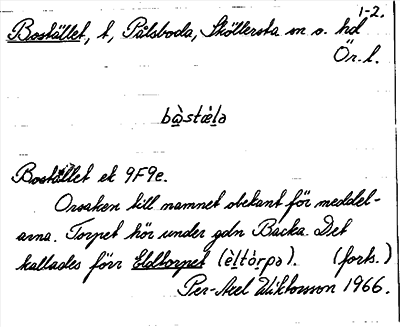 1-2.
Bostället, t, Pålsboda, Sköllersta sn o. hd
Ör. l.
bȯ̱̀stȧ̱lə
Bostället ek 9F9e.
Orsaken till namnet obekant för meddel-
arna. Torpet hör under gdn Backa. Det
kallades förr Eldtorpet (è̱ltȯ́rpə). (forts.)
Per-Axel Wiktorsson 1966.